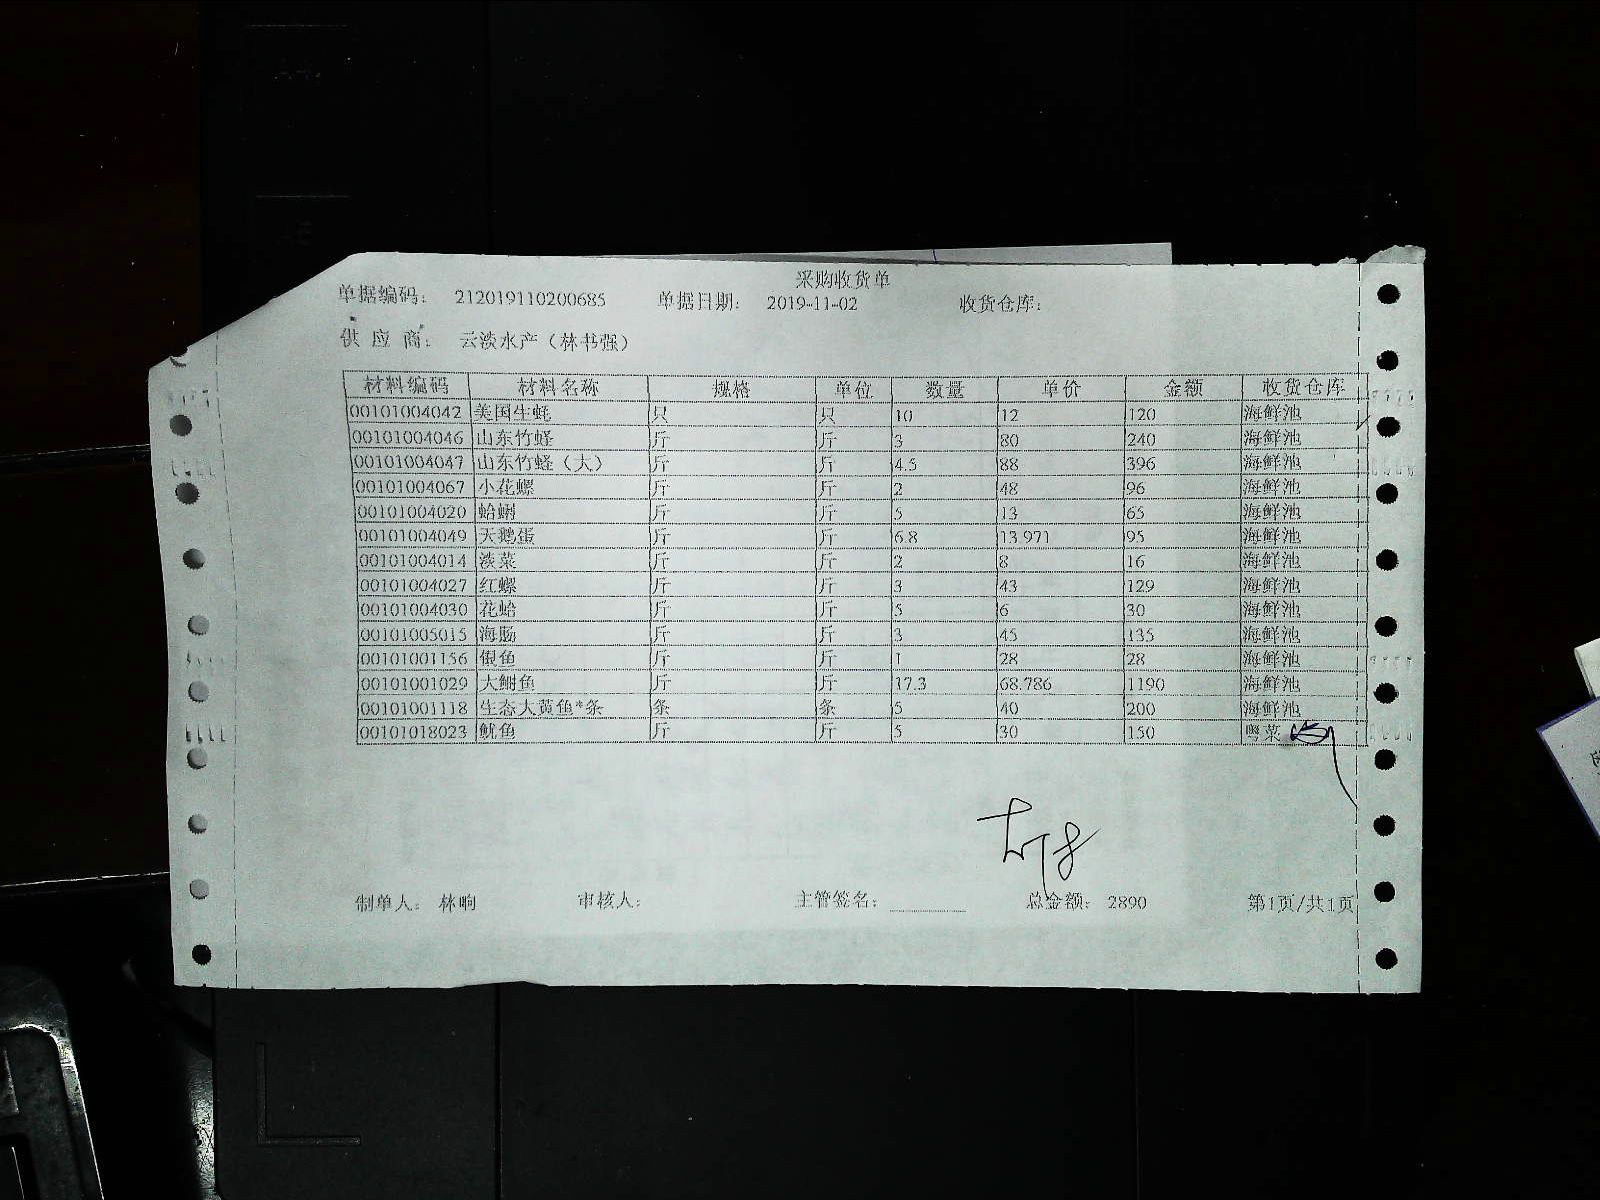 采购收货单
单据编码： 212019110200685 单据日期： 2019-11-02 收货仓库：
供 应 商： 云淡水产（林书强）
材料编码 材料名称 规格 单位 数量 单价 金额 收货仓库
00101004042 美国生蚝 只 只 10 12 120 海鲜池
00101004046 山东竹蛏 斤 斤 3 80 240 海鲜池
00101004047 山东竹蛏（大） 斤 斤 4.5 88 396 海鲜池
00101004067 小花螺 斤 斤 2 48 96 海鲜池
00101004020 蛤蜊 斤 斤 5 13 65 海鲜池
00101004049 天鹅蛋 斤 斤 6.8 13.971 95 海鲜池
00101004014 淡菜 斤 斤 2 8 16 海鲜池
00101004027 红螺 斤 斤 3 43 129 海鲜池
00101004030 花蛤 斤 斤 5 6 30 海鲜池
00101005015 海肠 斤 斤 3 45 135 海鲜池
00101001156 银鱼 斤 斤 1 28 28 海鲜池
00101001029 大鲋鱼 斤 斤 17.3 68.786 1190 海鲜池
00101001118 生态大黄鱼*条 条 条 5 40 200 海鲜池
00101018023 鱿鱼 斤 斤 5 30 150 粤菜
制单人： 林晌 审核人： 主管签名： 总金额： 2890 第1页/共1页